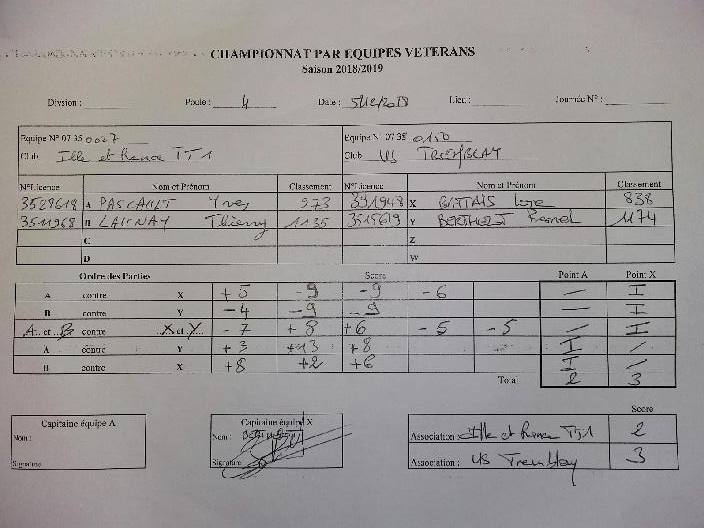 CHAMPIONNAT PAR EQUIPES VETERANS
Saison 2018/2019
Division : Poule : 4 Date : 5/12/2018 Lieu : Journée N° :
Equipe N° 07 35 0027 Equipe N° 07 35 0150
Club Ille et Rance TT1 Club US TREMBLAY
N°Licence Nom et Prénom Classement N°Licence Nom et Prénom Classement
3529618 A PASCAULT Yves 973 X 838
3511968 B LAUNAY Thierry 1135 3515619 Y BERTHELOT 1174
C Z
D W
Ordre des Parties Score Point A Point X
A contre X +5 -9 -9 -6 — I
B contre Y -4 -9 -9 — I
A et B contre X et Y -7 +8 +6 -5 -5 / I
A contre Y +3 +13 +8 I /
B contre X +8 +2 +6 I /
Total 2 3
Capitaine équipe A Capitaine équipe X Score
Nom : Nom : Association : Ille et Rance TT1 2
Signature Signature Association : US Tremblay 3